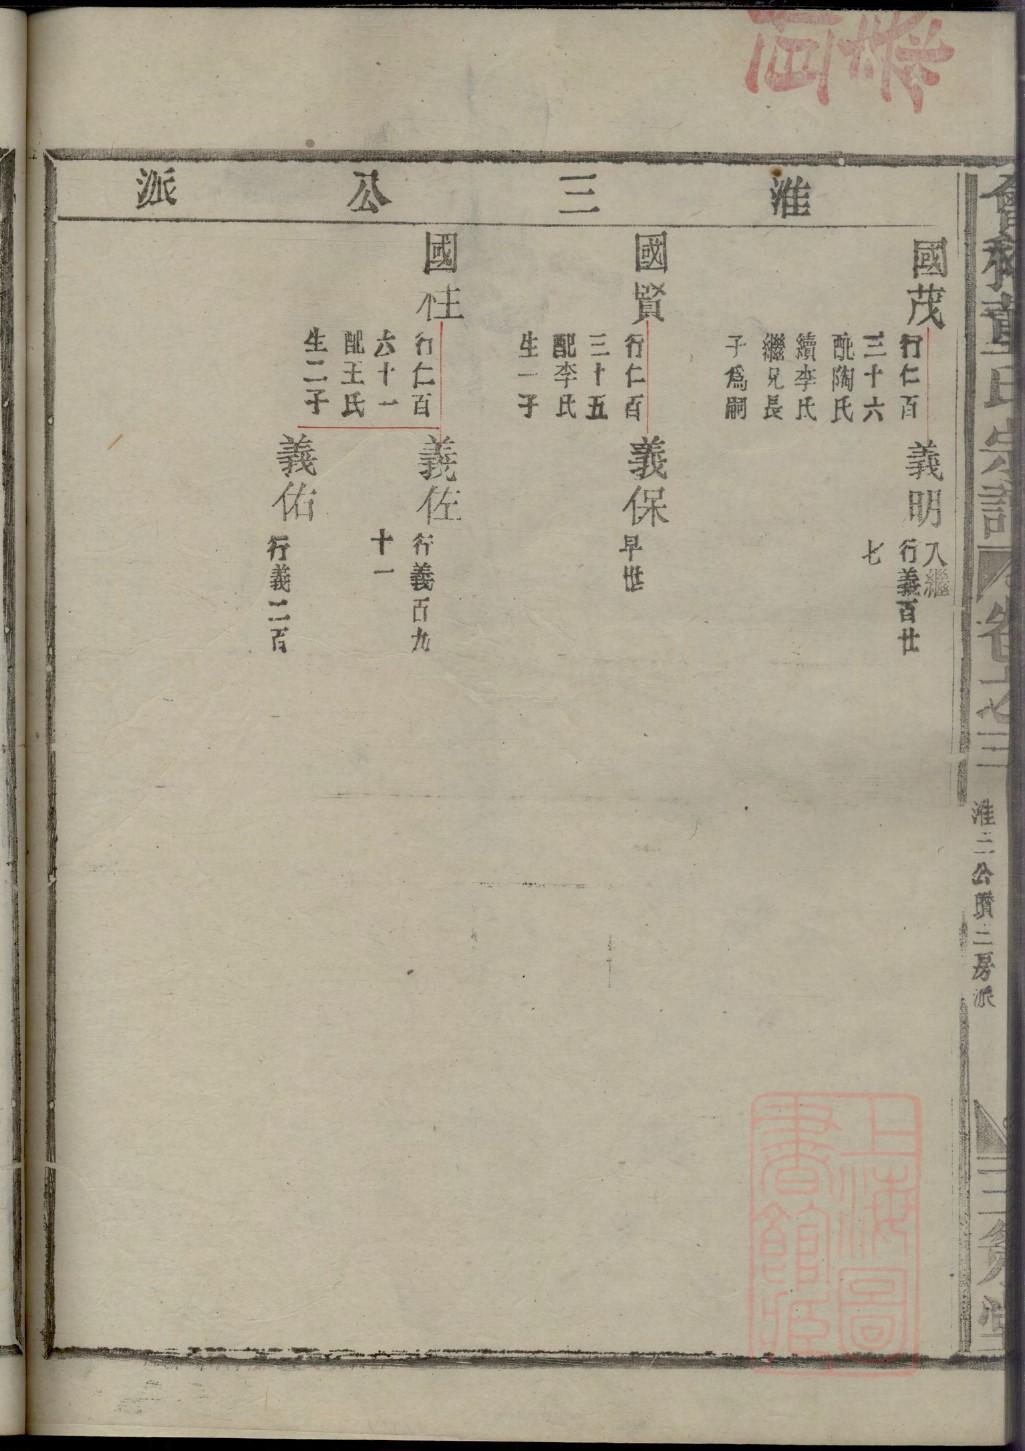 淮三公派
國茂
行仁百
三十六
配陶氏
續李氏
繼兄長
子爲嗣
義明
入繼
行義百廿
七
國賢
行仁百
三十五
配李氏
生一子
義保
早世
國住
行仁百
六十一
配王氏
生二子
義佐
行義百九
十一
義佑
行義二百
氏宗譜
卷之三
淮三公
二房派
三
堂
上海圖
書館藏